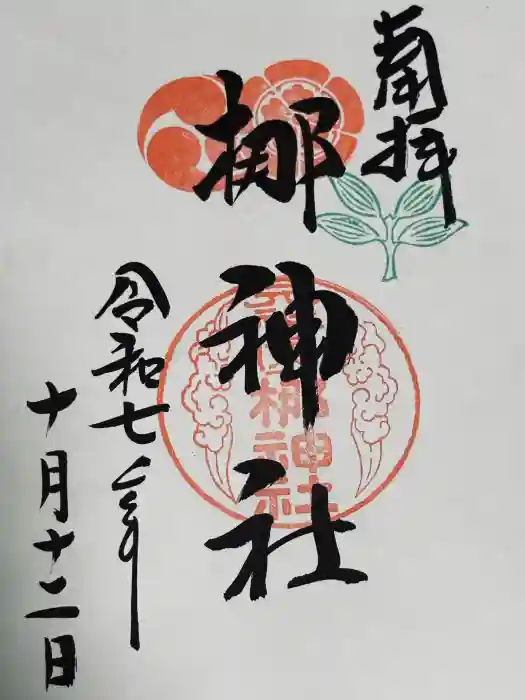 奉拝
梛神社
梛神社
令和七年
十月十二日